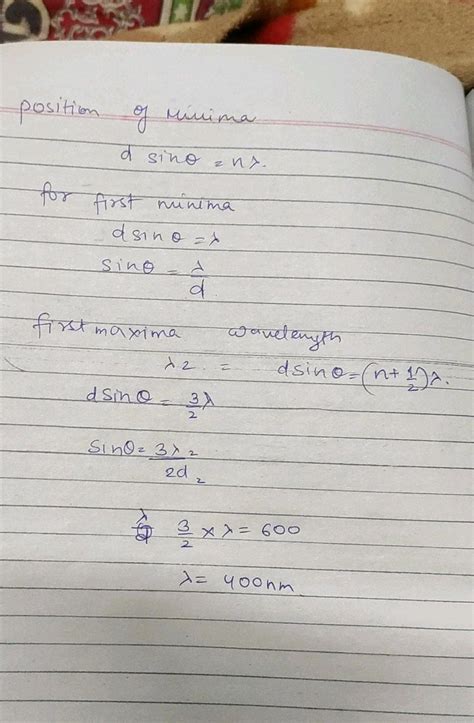 position of minima
d sinθ = nλ.
for first minima
dsinθ = λ
sinθ = λ/d
first maxima wavelength
λ2 = dsinθ = (n + 1/2)λ.
dsinθ = 3/2 λ
sinθ = 3λ2/2d2
3/2 × λ = 600
λ = 400nm